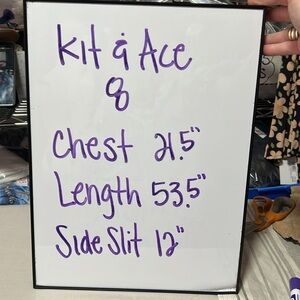 Kit & Ace
8
Chest 21.5"
Length 53.5"
Side Slit 12"